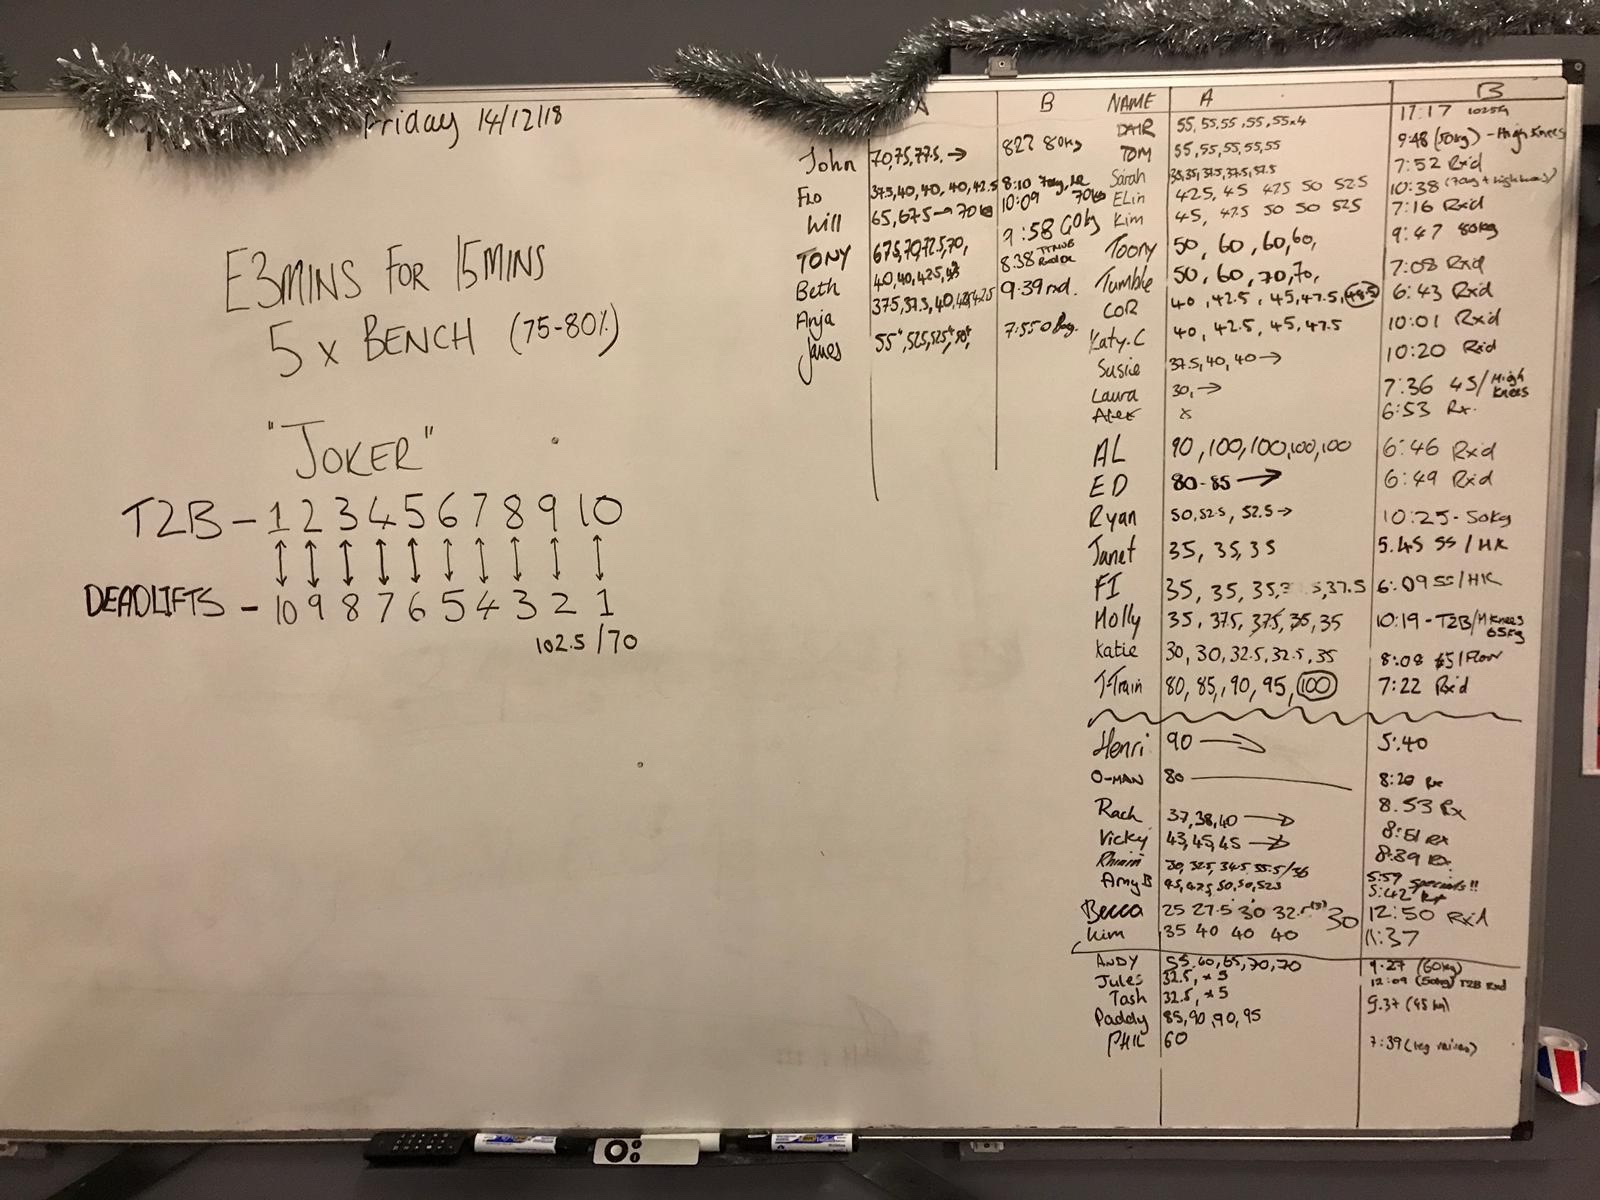 Friday 14/12/18
E3MINS FOR 15MINS
5 x BENCH (75-80%)
"JOKER"
T2B - 1 2 3 4 5 6 7 8 9 10
DEADLIFTS - 10 9 8 7 6 5 4 3 2 1
102.5/70
A B
John 70,75,77.5. → 827 80kg
Flo 37.5,40,40,40,42.5 8:10
Will 65,67.5 → 70 10:09 70kg
TONY 67.5,70,72.5,70, 9:58 60kg
Beth 40,40,42.5, 8:38
Anja 37.5,37.5,40, 42.5 9.39 rxd.
James 55
NAME A B
DAIR 55,55,55,55,55x4 17:17
TOM 55,55,55,55,55 9:48 (50kg) - High Knees
Sarah 7:52 Rx'd
Elin 42.5, 45 47.5 50 52.5 10:38
Kim 45, 47.5 50 50 52.5 7:16 Rx'd
Toony 50, 60, 60, 60, 9:47 80kg
Tumble 50, 60, 70, 70, 7:08 Rx'd
COR 40, 42.5, 45, 47.5, 6:43 Rx'd
Katy.C 40, 42.5, 45, 47.5 10:01 Rx'd
Susie 37.5, 40, 40 → 10:20 Rx'd
Laura 30, → 7:36 45/High Knees
Alex x 6:53 Rx.
AL 90, 100, 100, 100, 100 6:46 Rx'd
ED 80-85 → 6:49 Rx'd
Ryan 50, 52.5, 52.5 → 10:25 - 50kg
Janet 35, 35, 35 5.45 55 / HK
FI 35, 35, 35, ,37.5 6:09 55/HK
Molly 35, 37.5, 37.5, 35, 35 10:19 - T2B/H Knees 65kg
Katie 30, 30, 32.5, 32.5, 35 8:08
J-Train 80, 85, 90, 95, 100 7:22 Rx'd
Henri 90 → 5:40
O-MAN 80 8:20 Rx
Rach 37, 38, 40 → 8.53 Rx
Vicky 43, 45, 45 → 8:51 Rx
8:39 Rx
Amy B 50, 50, 52.5 5:42 Rx
Becca 25 27.5 30 32.5 (3) 30 12:50 Rx'd
Kim 35 40 40 40 11:37
ANDY 55, 60, 65, 70, 70 9.27 (60kg)
Jules 32.5, x 5 12:09 (50kg) T2B Rxd
Tash 32.5, x 5 9.37 (45kg)
Paddy 85, 90, 90, 95
PHIL 60 7:39 (leg raises)